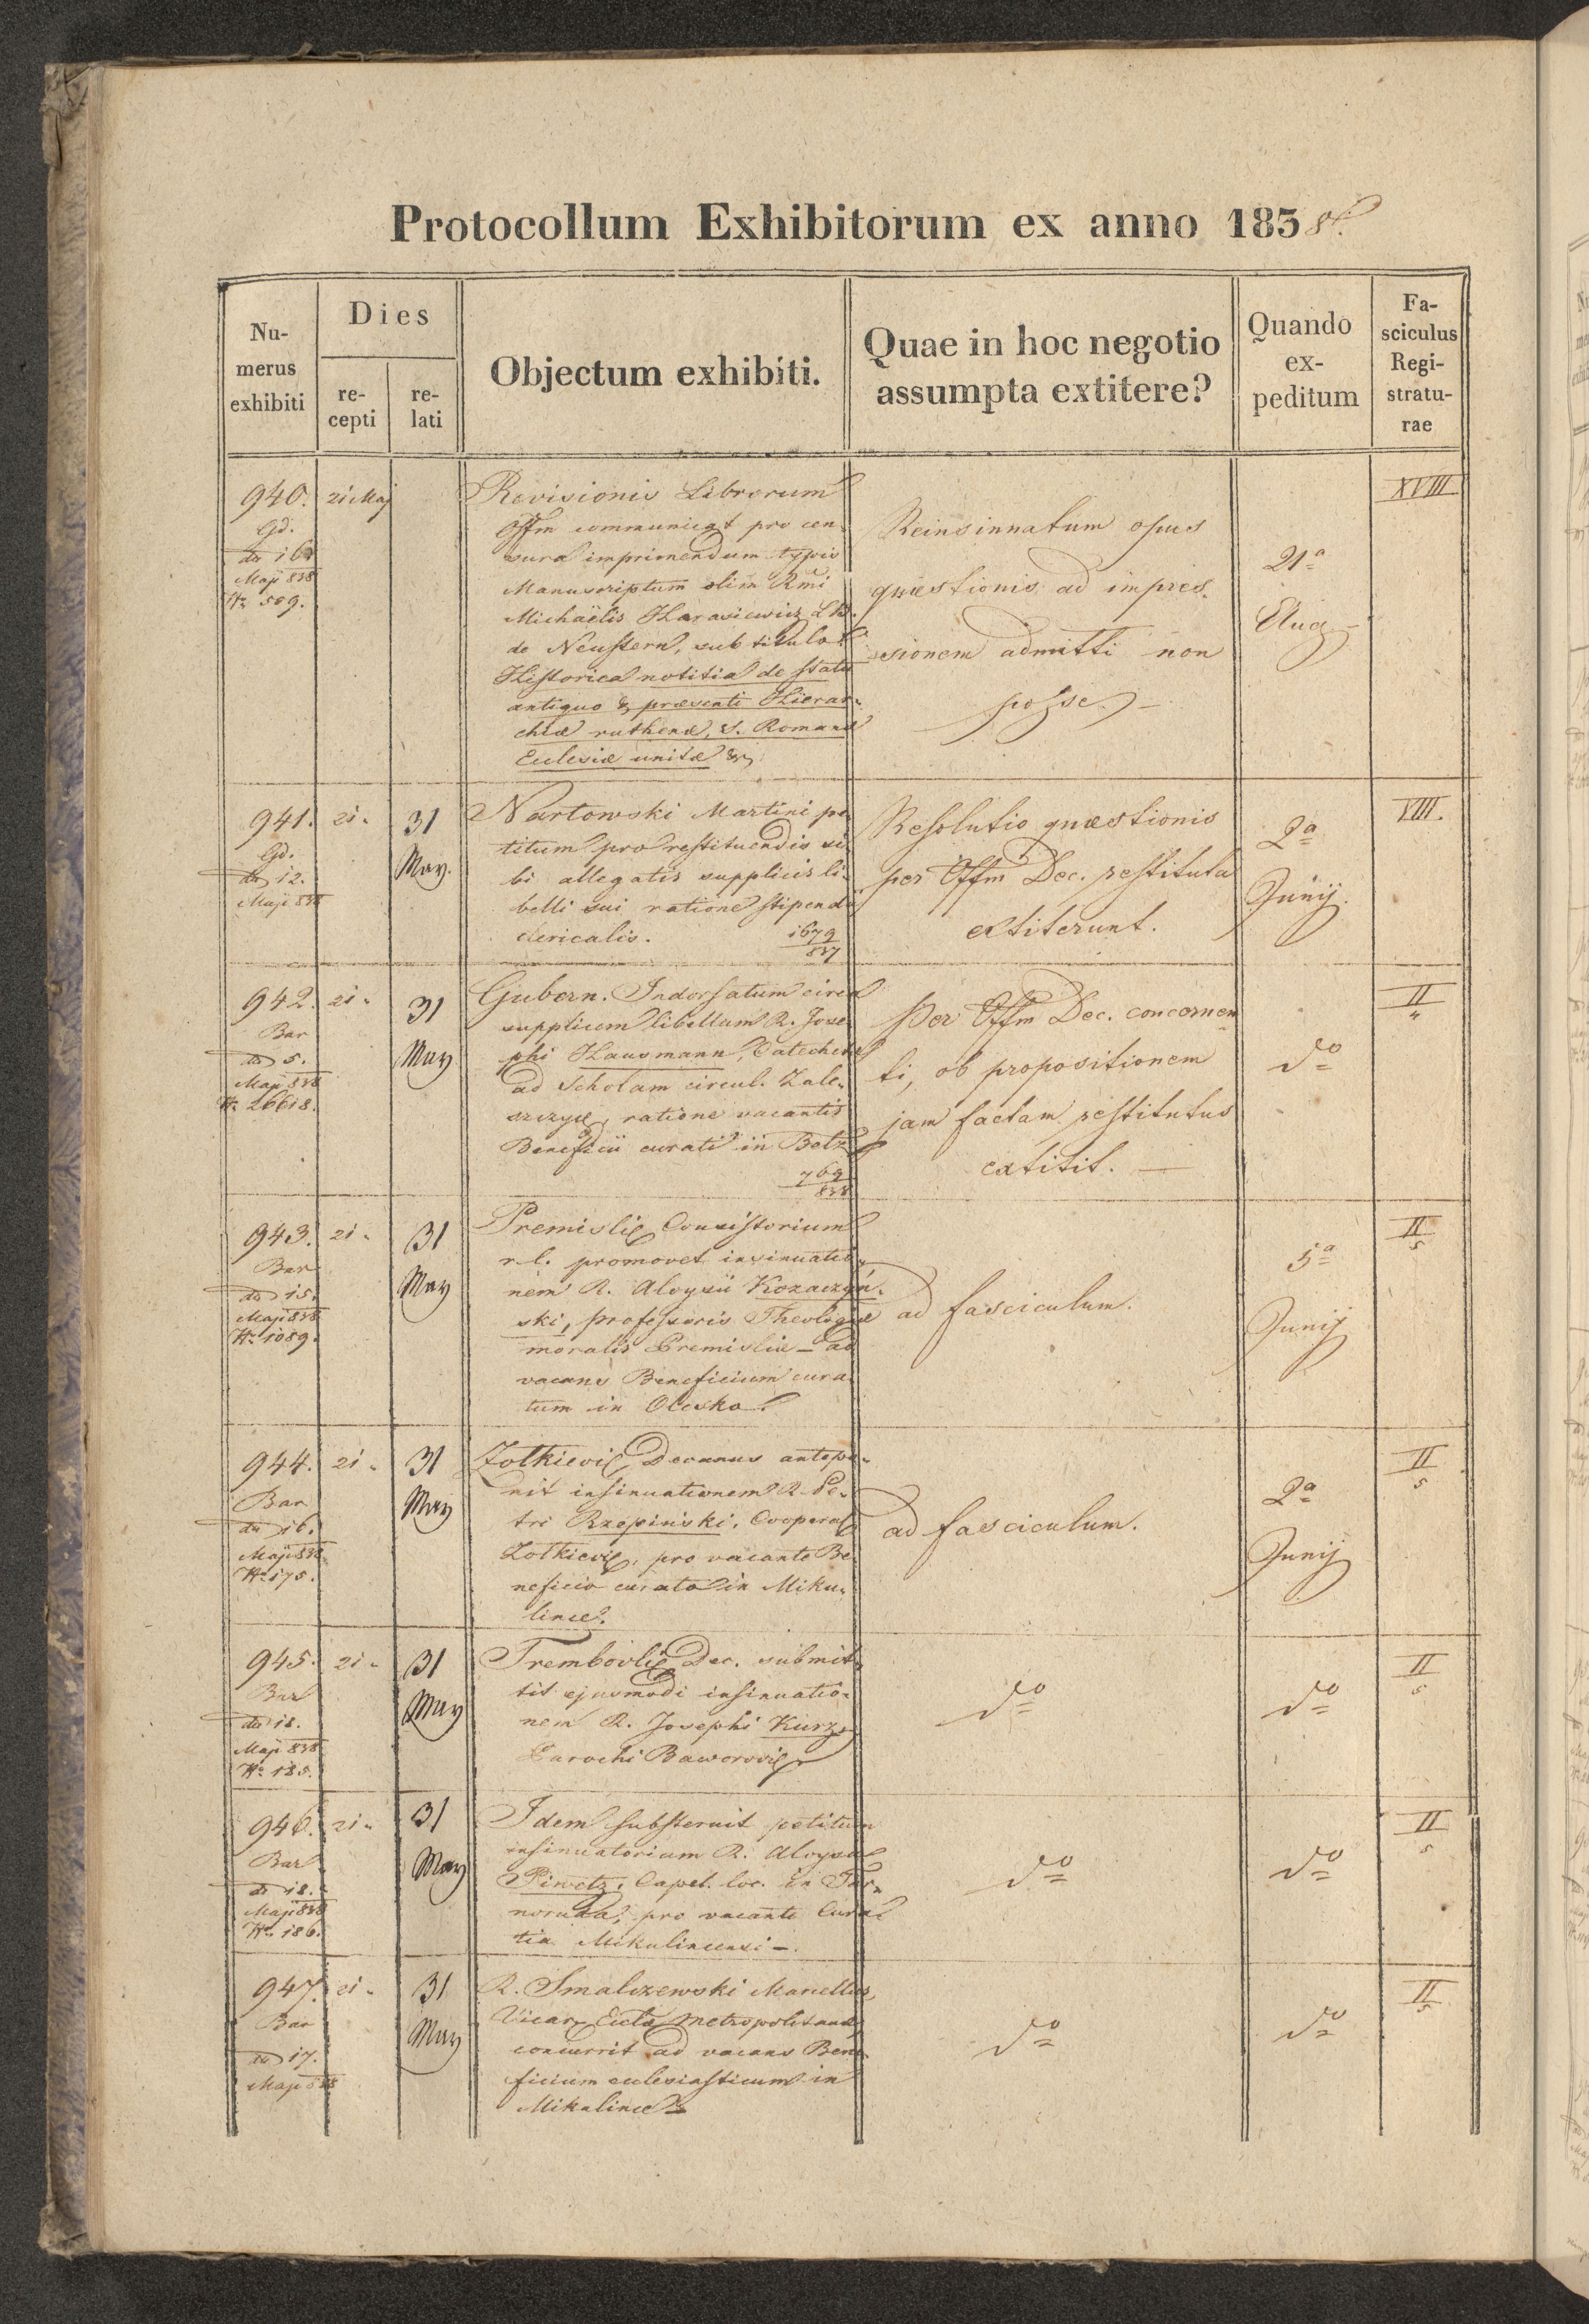 Protocollum Exhibitorum ex anno 1838.
Numerus exhibiti
Dies
recepti
relati
Objectum exhibiti.
Quae in hoc negotio
assumpta extitere?
Quando
ex-
peditum
Fa-
sciculus
Regi-
stratu-
rae
940.
Gd.
Maji 838
Nr. 509.
21 Maj
Revisionis Librorum
Offm communicat pro cen-
sura imprimendum typis
Manuscriptum olim Rmi
Michaëlis Harasiewicz LB.
de Neustern, sub titulo:
Historica notitia de statu
antiquo & præsenti Hierar-
chiæ ruthenæ, S. Romanæ
Ecclesiæ unitæ &c
Reinsinnatum opus
quæstionis ad impres-
sionem admitti non
posse. —
21a
Aug
XVIII
941.
Gd.
do 12.
Maji 838
21.
31
May.
Nartowski Martini pe-
titum pro restituendis si-
bi allegatis supplicis li-
belli sui ratione stipendii
clericalis.
1679
837
Resolutio quæstionis
per Offm Dec. restituta
extiterunt.
2a
Junij.
VIII.
942.
Bar
do 5.
Maji 838
Nr. 26618.
21.
31
May
Gubern. Indorsatum circa
supplicem libellum R. Jose-
phi Hausmann, Catechetæ
ad Scholam circul. Zale-
szczyc, ratione vacantis
Beneficii curati in Betz
769
838
Per Offm Dec. concernen-
ti, ob propositionem
jam factam restitutus
extitit. —
do
II
943.
Bar
do 15.
Maji 838
Nr. 1089.
21.
31
May
Premisliæ Consistorium
r.l. promovet insinuatio-
nem R. Aloysii Kozaczyń-
ski, professoris Theologiæ
moralis Premisliæ — ad
vacans Beneficium cura-
tum in Olesko.
ad fasciculum.
5a
Junij
II
5
944.
Bar
do 16.
Maji 838
Nr. 175.
21.
31
May
Zołkieviæ Decanus antepo-
nit insinuationem R. Pe-
tri Rzepiński, Cooperat
Zolkieviæ, pro vacante Be-
neficio curato in Miku-
lince.
ad fasciculum.
2a
Junij
II
5
945.
Bar
do 18.
Maji 838
Nr. 185.
21.
31
May
Trembovliæ Dec. submit-
tit ejusmodi insinuatio-
nem R. Josephi Kurz,
Parochi Baworoviæ
do
do
II
5
946.
Bar
do 18.
Maji 838
Nr. 186.
21.
31
May
Idem substernit petitum
insinuatorium R. Aloysii
Piwetz, Capel. loc. in Tar-
noruda, pro vacante Cura-
tia Mikulincensi —.
do
do
II
5
947.
Bar
do 17.
Maji 838
21.
31
May
R. Smalczewski Marcellus,
Vicar. Eccla Metropolitanæ
concurrit ad vacans Bene-
ficium ecclesiasticum in
Mikulince
do
do
II
5